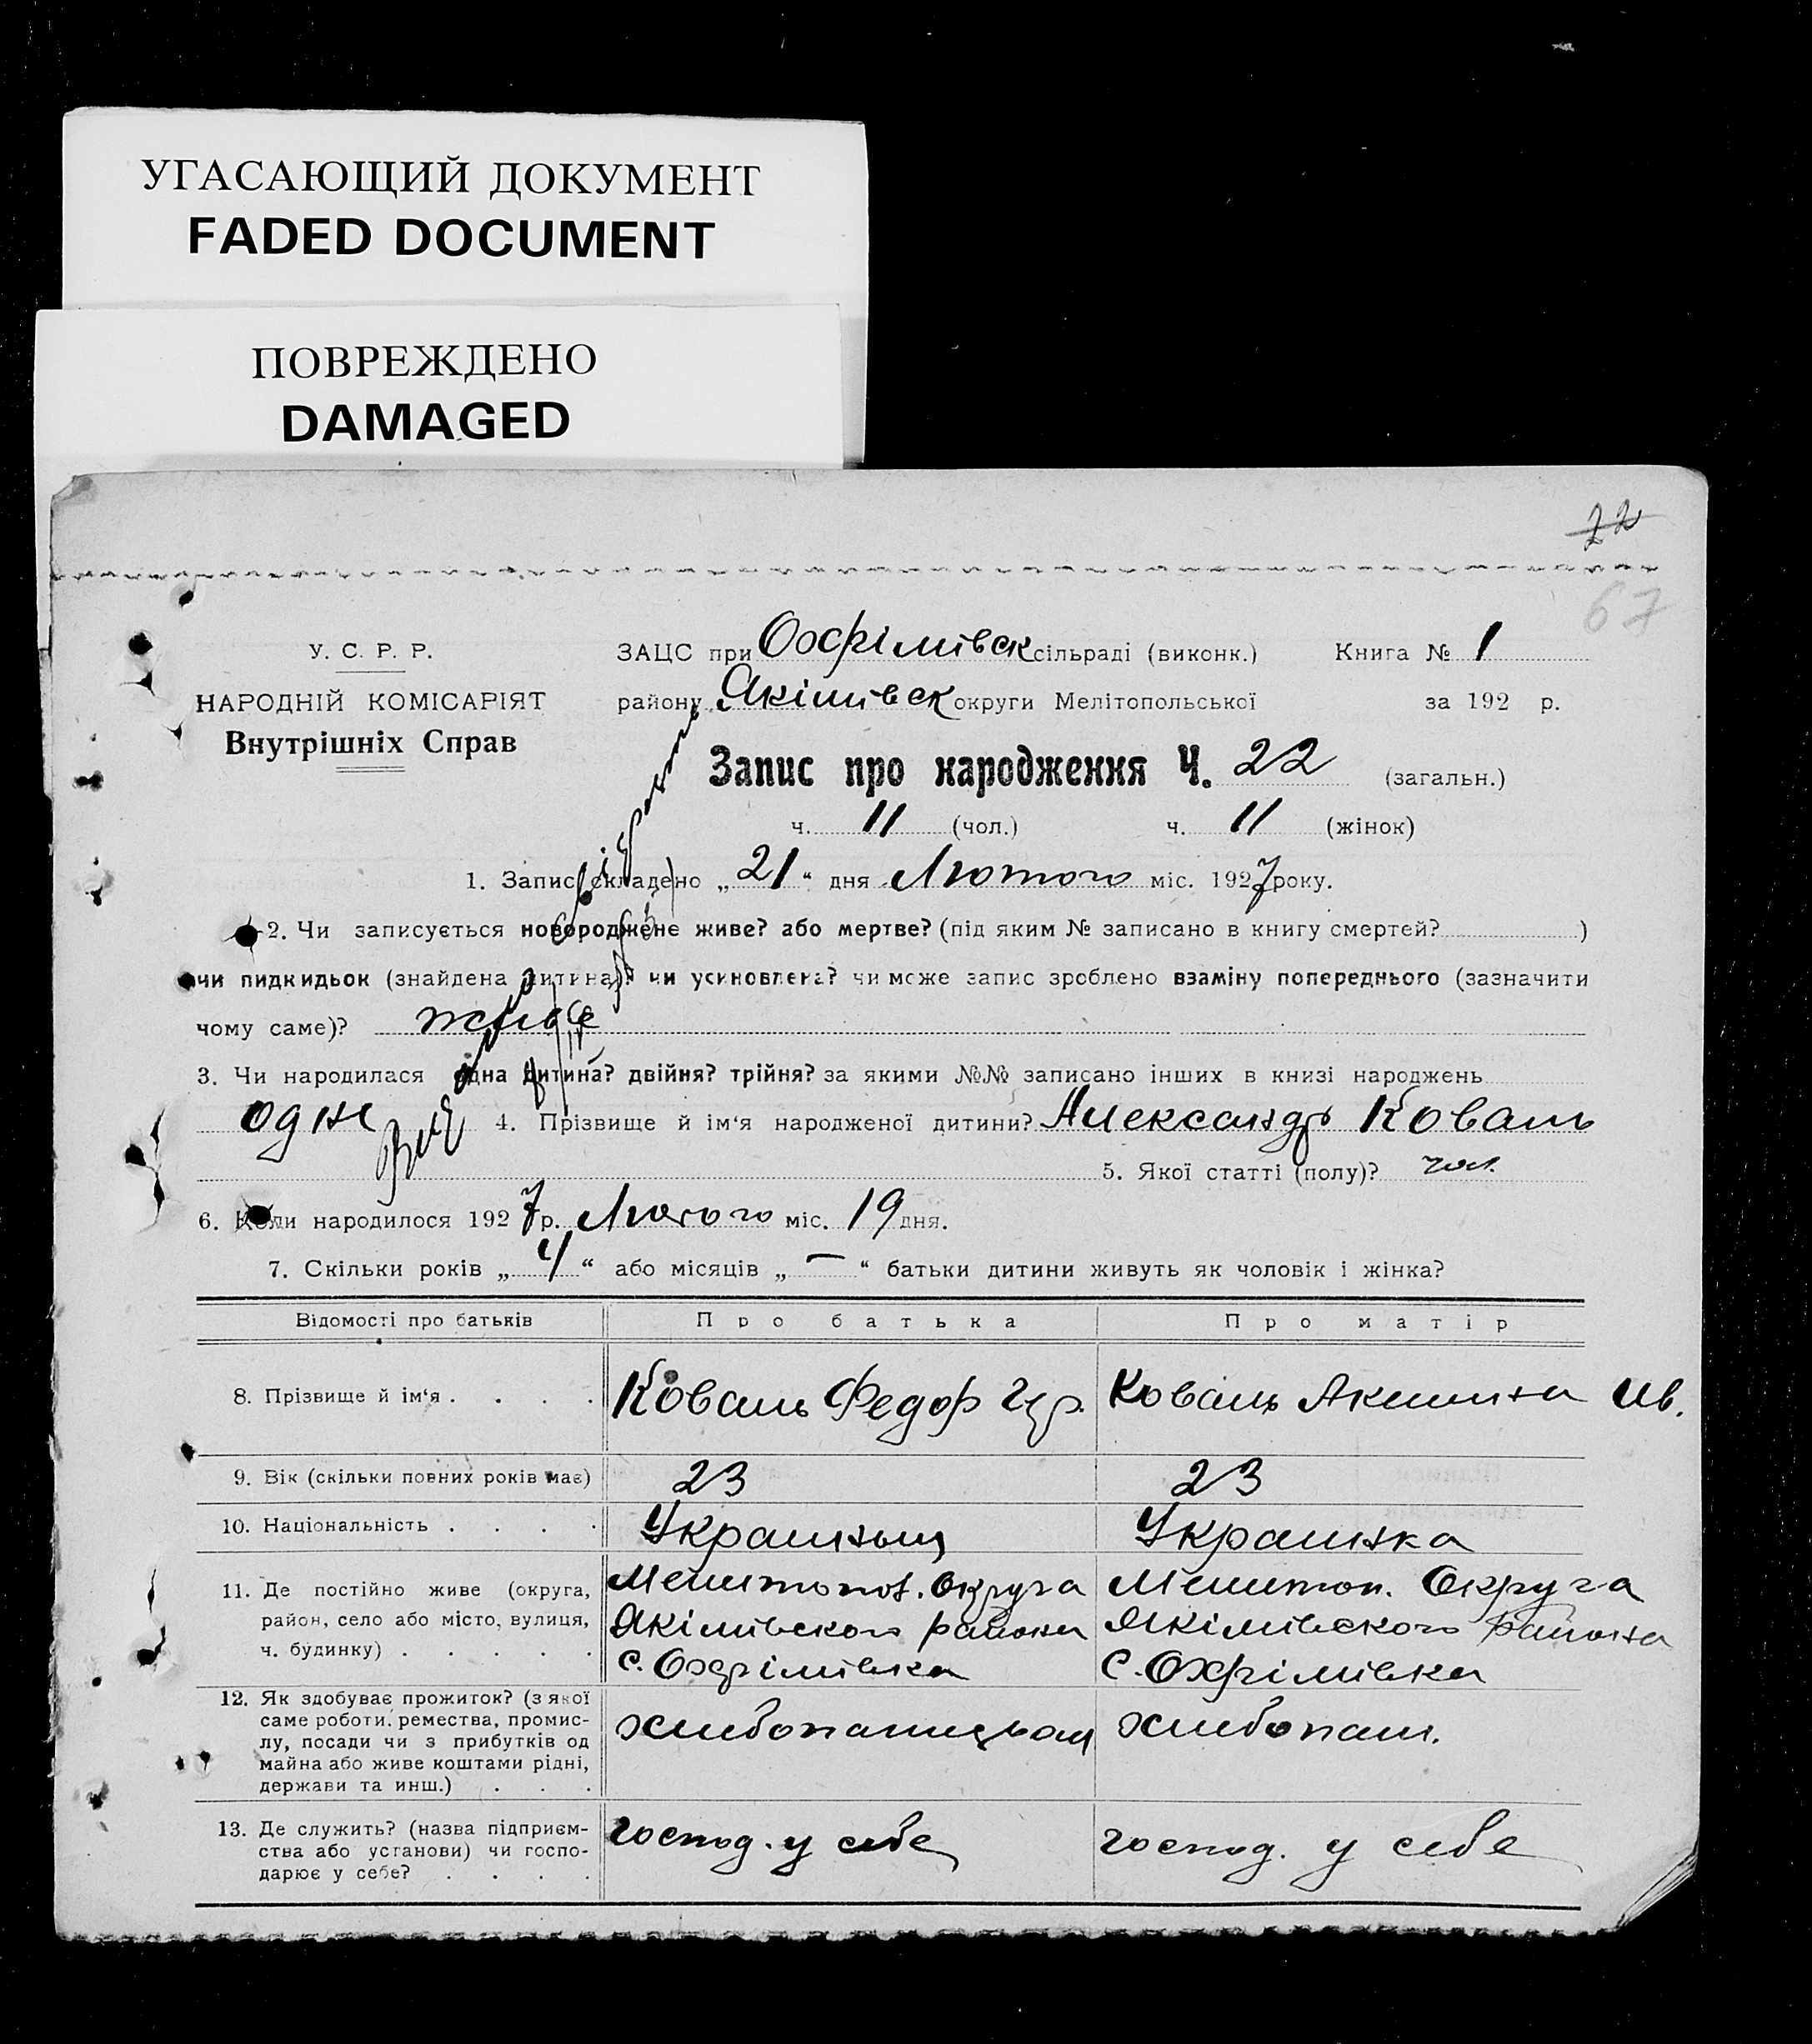 УГАСАЮЩИЙ ДОКУМЕНТ
FADED DOCUMENT
ПОВРЕЖДЕНО
DAMAGED
22
67
У. С. Р. Р.
НАРОДНІЙ КОМІСАРІЯТ
Внутрішніх Справ
ЗАЦС при Охрімівск сільраді (виконк.) Книга № 1
району Якімівск округи Мелітопольської за 192 р.
Запис про народження Ч. 22 (загальн.)
ч. 11 (чол.) ч. 11 (жінок)
1. Запис складено „21“ дня Лютого міс. 1927 року.
2. Чи записується новороджене живе? або мертве? (під яким № записано в книгу смертей? )
чи пидкидьок (знайдена дитина)? чи усиновлена? чи може запис зроблено взаміну попереднього (зазначити
чому саме)? живе
3. Чи народилася одна дитина? двійня? трійня? за якими №№ записано інших в книзі народжень
одне 4. Прізвище й ім‘я народженої дитини? Александр Коваль
5. Якої статті (полу)? чол.
6. Коли народилося 1927 р. Лютого міс. 19 дня.
7. Скільки років „4“ або місяців „—“ батьки дитини живуть як чоловік і жінка?
Відомості про батьків Про батька Про матір
8. Прізвище й ім‘я . . . . Коваль Федор Гр. Коваль Акилина Ив.
9. Вік (скільки повних років має) 23 23
10. Національність . . . . Украинець Украинка
11. Де постійно живе (округа, Мелитопол. Округа Мелитоп. Округа
район, село або місто, вулиця, Якімівского района Якімівского района
ч. будинку) . . . . . с. Охрімівка с. Охрімівка
12. Як здобуває прожиток? (з якої
саме роботи, ремества, промис- хлибопашцьом хлибопаш.
лу, посади чи з прибутків од
майна або живе коштами рідні,
держави та инш.) . . .
13. Де служить? (назва підприєм- господ. у себе господ. у себе
ства або установи) чи госпо-
дарює у себе? . . . .